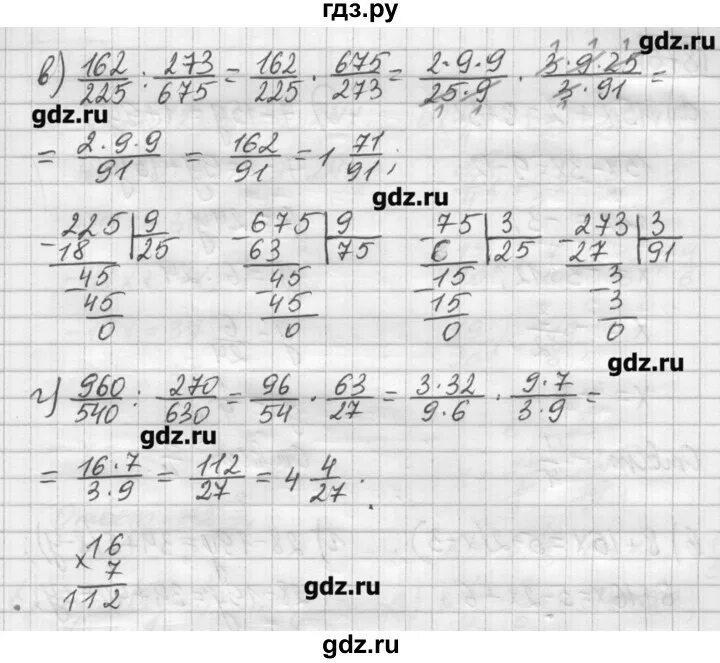 гдз.ру
gdz.ru
в) 162/225 : 273/675 = 162/225 · 675/273 = 2·9·9/25·9 · 3·9·25/3·91 =
gdz.ru
= 2·9·9/91 = 162/91 = 1 71/91;
gdz.ru
225 | 9
-18 | 25
-45
45
0
675 | 9
-63 | 75
-45
45
0
-75 | 3
6 | 25
-15
15
0
-273 | 3
27 | 91
-3
3
0
gdz.ru
г) 960/540 : 270/630 = 96/54 · 63/27 = 3·32/9·6 · 9·7/3·9 =
gdz.ru
= 16·7/3·9 = 112/27 = 4 4/27.
×16
7
112
gdz.ru
gdz.ru